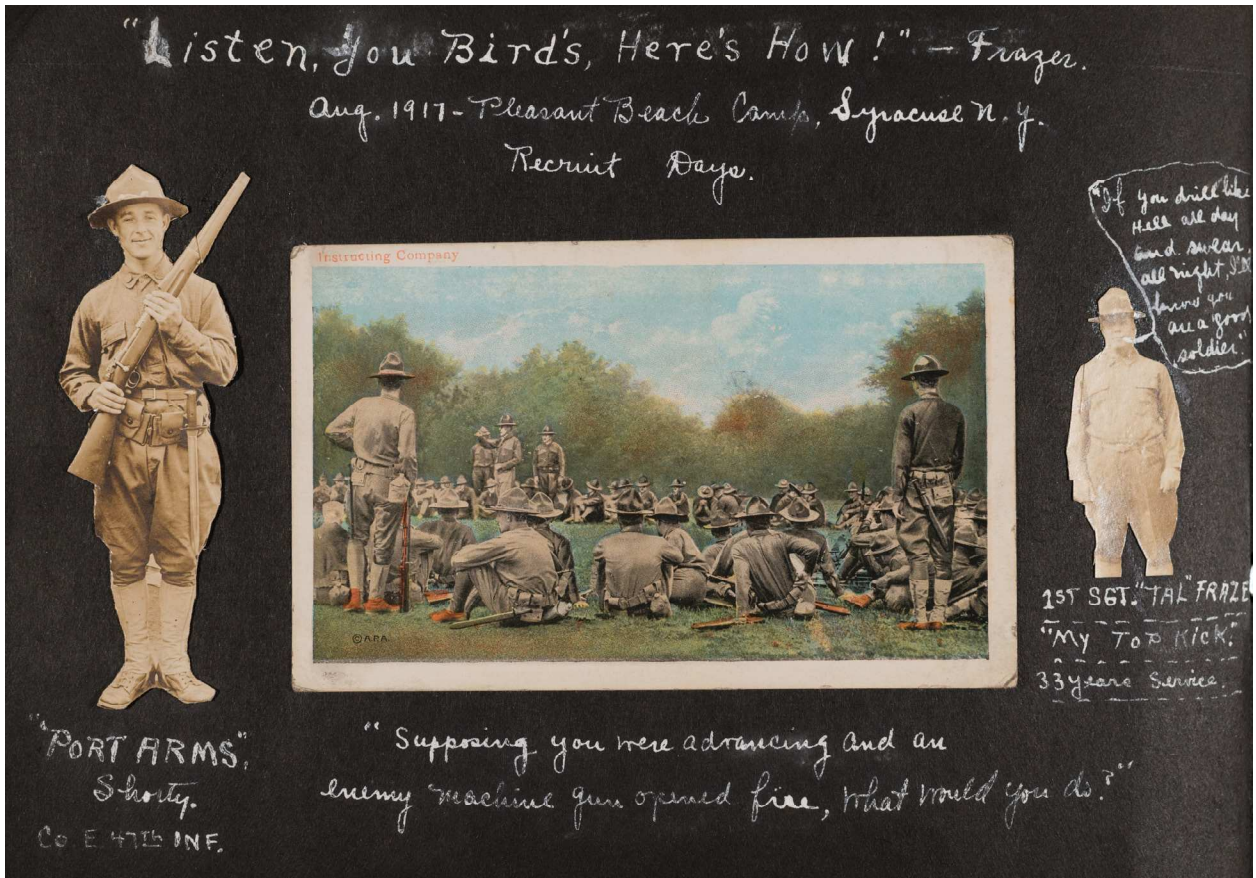 "Listen, You Bird's, Here's How!" - Frazer.
Aug. 1917 - Pleasant Beach Camp, Syracuse N.Y.
Recruit Days.
"If you drill like
Hell all day
and swear
all night, I'll
know you
are a good
soldier."
Instructing Company
© A.P.A.
1ST SGT. "TAL" FRAZE
"My TOP KICK."
33 years Service.
"PORT ARMS",
Shorty.
Co. E 47th INF.
"Supposing you were advancing and an
enemy machine gun opened fire, what would you do?"